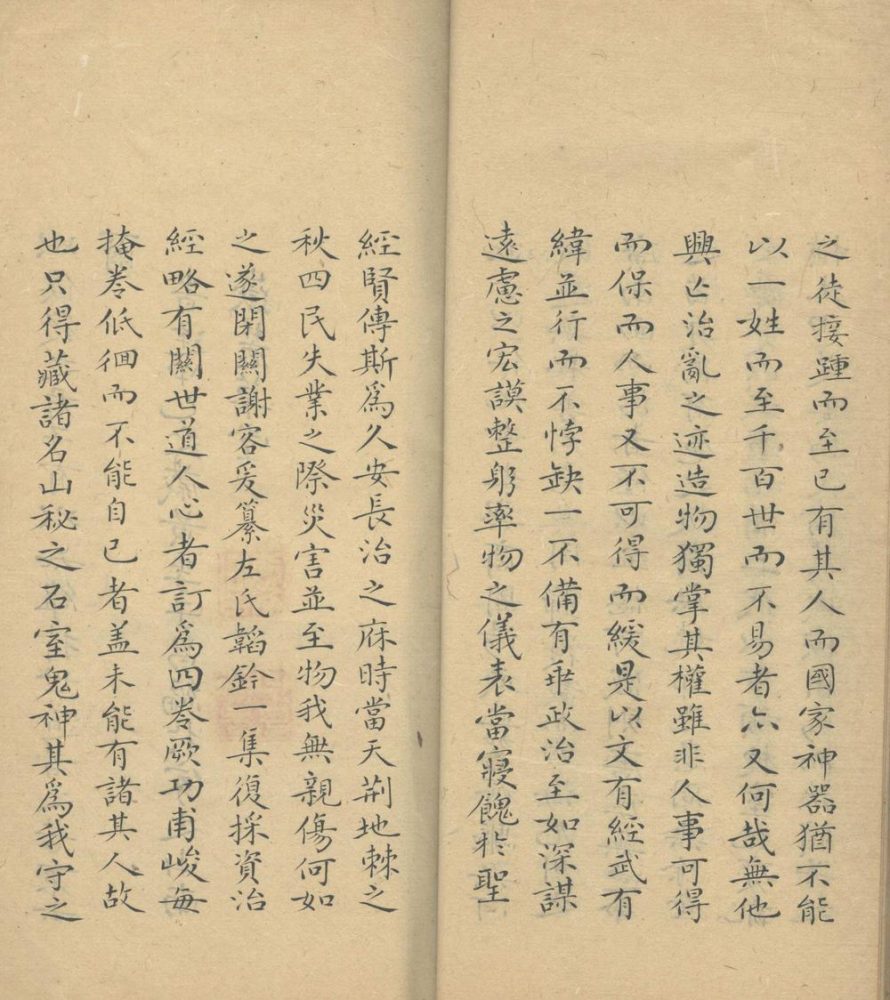 之徒接踵而至已有其人而國家神器猶不能
以一姓而至千百世而不易者亦又何哉無他
興亡治亂之迹造物獨掌其權雖非人事可得
而保而人事又不可得而緩是以文有經武有
緯並行而不悖缺一不備有乖政治至如深謀
遠慮之宏謨整躬率物之儀表當寢餽於聖
經賢傳斯爲久安長治之庥時當天荊地棘之
秋四民失業之際災害並至物我無親傷何如
之遂閉關謝客爰纂左氏韜鈐一集復採資治
經略有關世道人心者訂爲四卷厥功甫峻每
掩卷低徊而不能自已者盖未能有諸其人故
也只得藏諸名山秘之石室鬼神其爲我守之